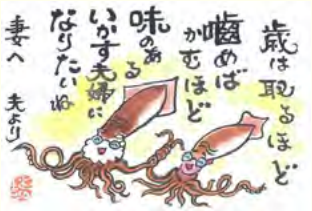 歳は取るほど
噛めば
かむほど
味のある
いかす夫婦に
なりたいね
妻へ 夫より